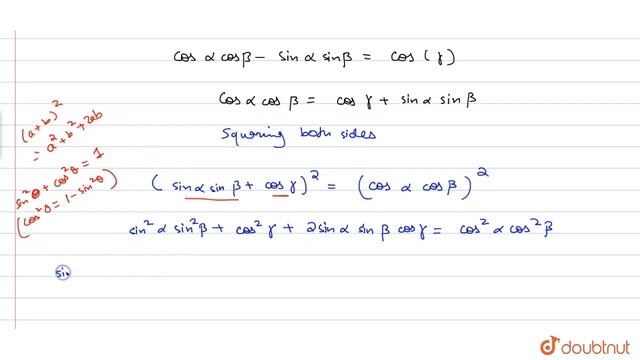 cos α cosβ - sin α sinβ = cos (γ)
cosα cos β = cos γ + sinα sin β
Squaring both sides
(a+b)²
= a² + b² + 2ab
sin²θ + cos²θ = 1
(cos²θ = 1 - sin²θ)
(sinα sin β + cos γ)² = (cos α cosβ)²
sin²α sin²β + cos²γ + 2sinα sin β cosγ = cos²α cos²β
sin
doubtnut